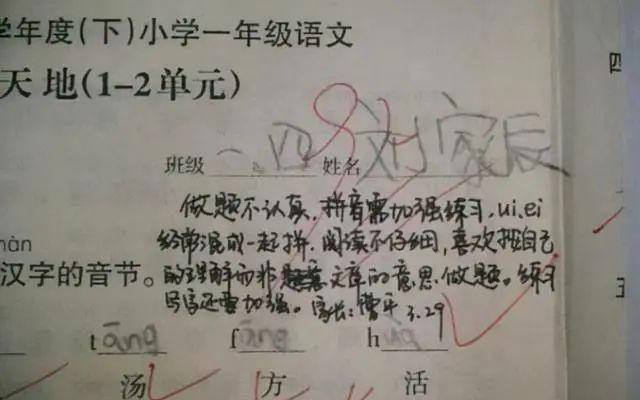 学年度(下)小学一年级语文
天地(1-2单元)
班级 一.四 姓名 刘家辰
做题不认真,拼音需加强练习,ui.ei
经常混成一起拼.阅读不仔细,喜欢按自己
的理解而非题意文章的意思做题。练习
写字还要加强。家长:曹平 3.29
màn
汉字的音节。
tāng fāng huó
汤 方 活
四